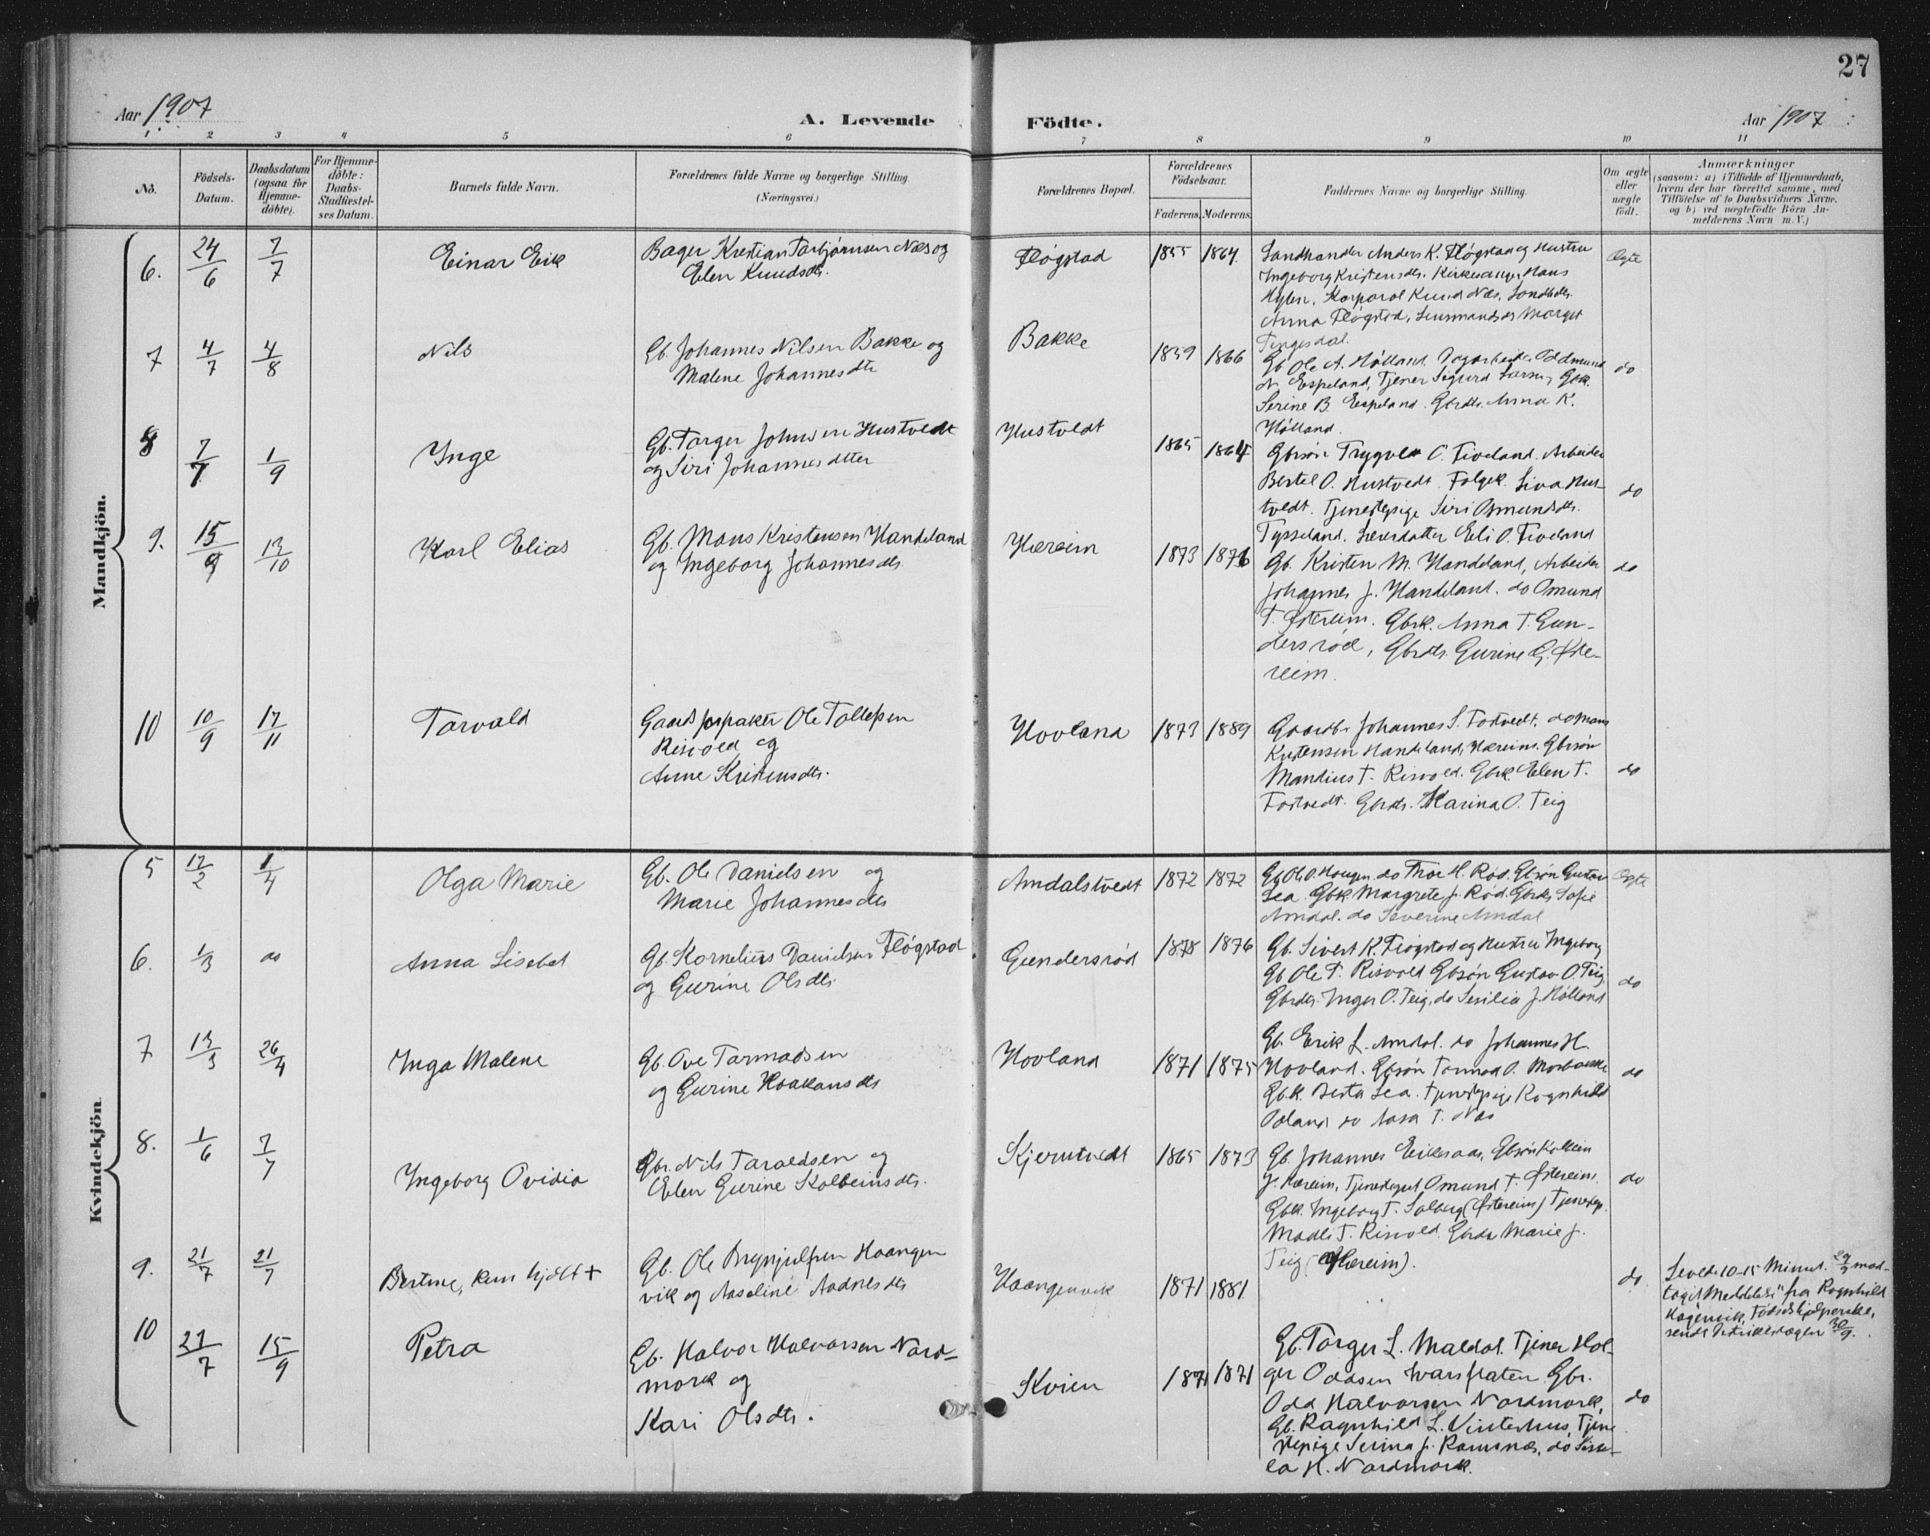 27
Aar 1907
A. Levende
Födte.
Aar 1907
1 2 3 4 5 6 7 8 9 10 11
No.
Födsels-
Datum.
Daabsdatum
(ogsaa for
Hjemme-
döbte).
For Hjemme-
döbte:
Daabs-
Stadfæstel-
ses Datum.
Barnets fulde Navn.
Forældrenes fulde Navne og borgerlige Stilling.
(Næringsvei.)
Forældrenes Bopæl.
Forældrenes
Födselsaar.
Faderens.
Moderens.
Faddernes Navne og borgerlige Stilling.
Om ægte
eller
uægte
födt.
Anmærkninger
(saasom: a) i Tilfælde af Hjemmedaab,
hvem der har forrettet samme, med
Tilföielse af to Daabsvidners Navne.
og b) ved uægtefödte Börn An-
melderens Navn m. V.)
Mandkjön.
6.
24/6
7/7
Einar Eik
Bager Kristian Torbjørnsen Næs og
Elen Knudsdtr.
Fløgstad
1855
1864
Landhandler Anders K. Fløgstad og Hustru
Ingeborg Kristensdtr. Kirkesanger Hans
Hylen, Korporal Knud Næs, Landhdtr.
Anna Fløgstad, Lensmandsdtr Marget
Tengesdal.
Ægte
7
4/7
4/8
Nils
Gb. Johannes Nilsen Bakke og
Malene Johannesdtr
Bakke
1859
1866
Gb Ole A. Hølland. Dagarbeider Oddmund
N. Espeland, Tjener Sigurd Larsen, Gbk.
Serine B. Espeland. Gbrdtr. Anna K.
Hølland.
do
8
7/7
1/9
Inge
Gb. Torger Johnsen Hustvedt
og Siri Johannesdtter
Hustvedt
1865
1864
Gbrsøn Trygve O. Fiveland. Arbeider
Bertel O. Hustvedt. Følgek. Liva Hus-
tvedt. Tjenestepige Siri Osmundsdtr.
Tysseland. Lærerdatter Eli O. Fiveland
do
9.
15/9
13/10
Karl Elias
Gb. Mons Kristensen Handeland
og Ingeborg Johannesdtr.
Hæreim
1873
1876
Gb. Kristen M. Handeland, Arbeider
Johannes J. Handeland. do Osmund
T. Østereim. Gbrk. Anna T. Gun-
dersrød, Gbrdtr. Gurine G. Øste-
reim.
do
10
10/9
17/11
Torvald
Gaardforpakter Ole Tollefsen
Risvold og
Anne Kristensdtr.
Hovland
1873
1889
Gaardbr Johannes S. Tostvedt, do Mons
Kristensen Handeland, Hæreim. Gbrsøn
Mandius T. Risvold. Gbrk. Elen T.
Tostvedt. Gbrdtr. Karina O. Teig
do
Kvindekjön.
5
17/2
1/4
Olga Marie
Gb. Ole Danielsen og
Marie Johannesdtr
Amdalstvedt
1872
1872
Gb Ole O. Haugen do Thor H. Rød. Gbsøn Gustav
Lea. Gbk Margrete J. Rød. Gbrdtr Sofie
Amdal. do Severine Amdal
Ægte
6.
1/3
do
Anna Lisebet
Gb. Kornelius Danielsen Fløgstad
og Gurine Olsdtr.
Gundersrød
1878
1876
Gb. Sivert K. Fløgstad og Hustru Ingeborg
Gb Ole T. Risvold Gbsøn Gustav O. Teig
Gbrdtr. Inger O. Teig, do Sesilia J. Hølland
do
7
13/3
26/4
Inga Malene
Gb. Ove Tormodsen
og Gurine Haakonsdtr
Hovland
1871
1875
Gb. Erik L. Amdal. do Johannes H.
Hovland. Gbsøn Tormod O.
Gbk. Berta Lea. Tjenestepige Ragnhild
Øoland do Aasa T. Næs
do
8.
1/6
7/7
Ingeborg Ovidia
Gbr. Nils Taraldsen og
Elen Gurine Kolbeinsdtr.
Skjerutvedt
1865
1873
Gb. Johannes Eiksaas, Gbsøn Kolbein
J. Hæreim, Tjenestegut Osmund T. Østereim.
Gbk. Ingeborg T. Solberg (Østereim) Tjenstep.
Madli T. Risvold. Gbrdtr Marie J.
Teig (Hæreim).
do
9.
21/7
21/7
Bertine, kun hjdbt +
Gb. Ole Brynjulfsen Haangen
vik og Aaseline Aadnesdtr
Haangenvik
1871
1881
do.
Levede 10-15 Minut. 29/7 mod-
taget Meddelelse fra Ragnhild
Høgenvik, Fødselshjælperske,
sendt Distriktslægen 30/9.
10
27/7
15/9
Petra
Gb. Halvor Halvorsen Nord-
mork og
Kari Olsdtr.
Kvien
1871
1871
Gb. Torger L. Maldal. Tjener Hol-
ger Oddsen Svarsflaten. Gbr.
Odd Halvorsen Nordmork,
Gb. Ragnhild L. Vinterhus, Tjene-
stepige Serina J. Ramsnæs, do Sisse-
la H. Nordmork.
do